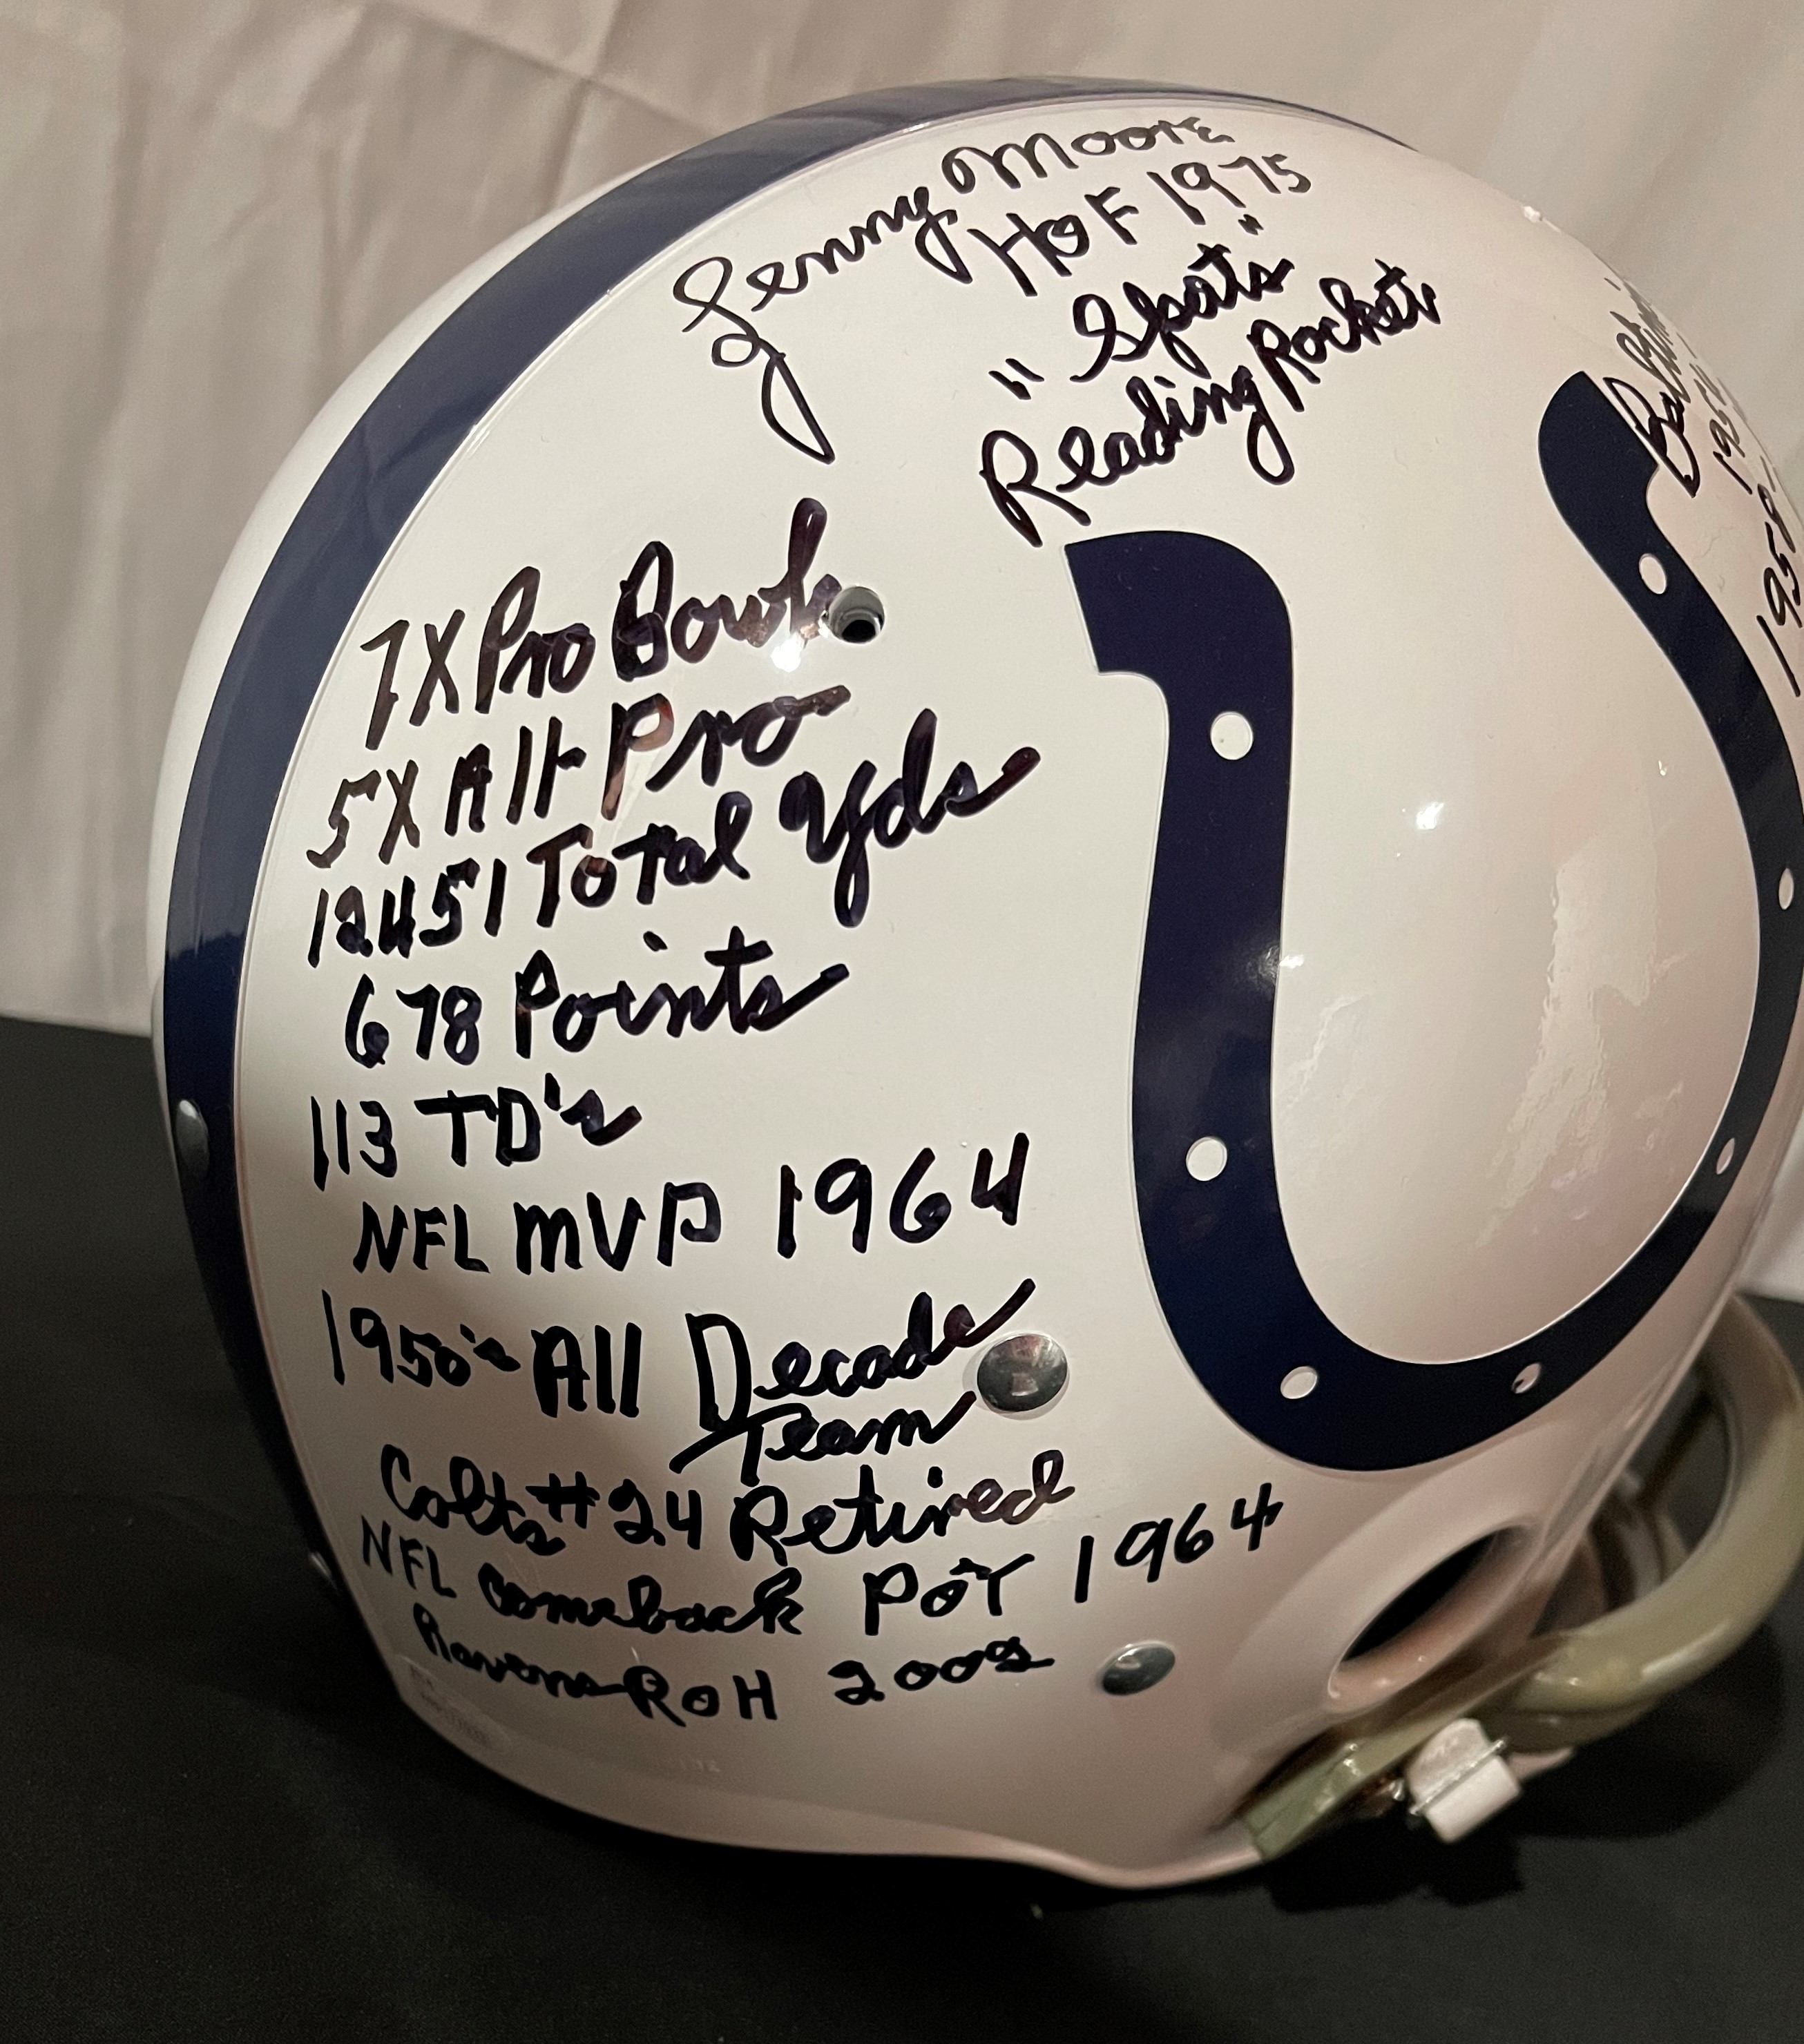 Lenny Moore
HOF 1975
"Spats"
Reading Rocket
7X Pro Bowl
5X All Pro
12451 Total Yds
678 Points
113 TD's
NFL MVP 1964
1950's All Decade
Team
Colts #24 Retired
NFL Comeback PoY 1964
Ravens RoH 2002
1958